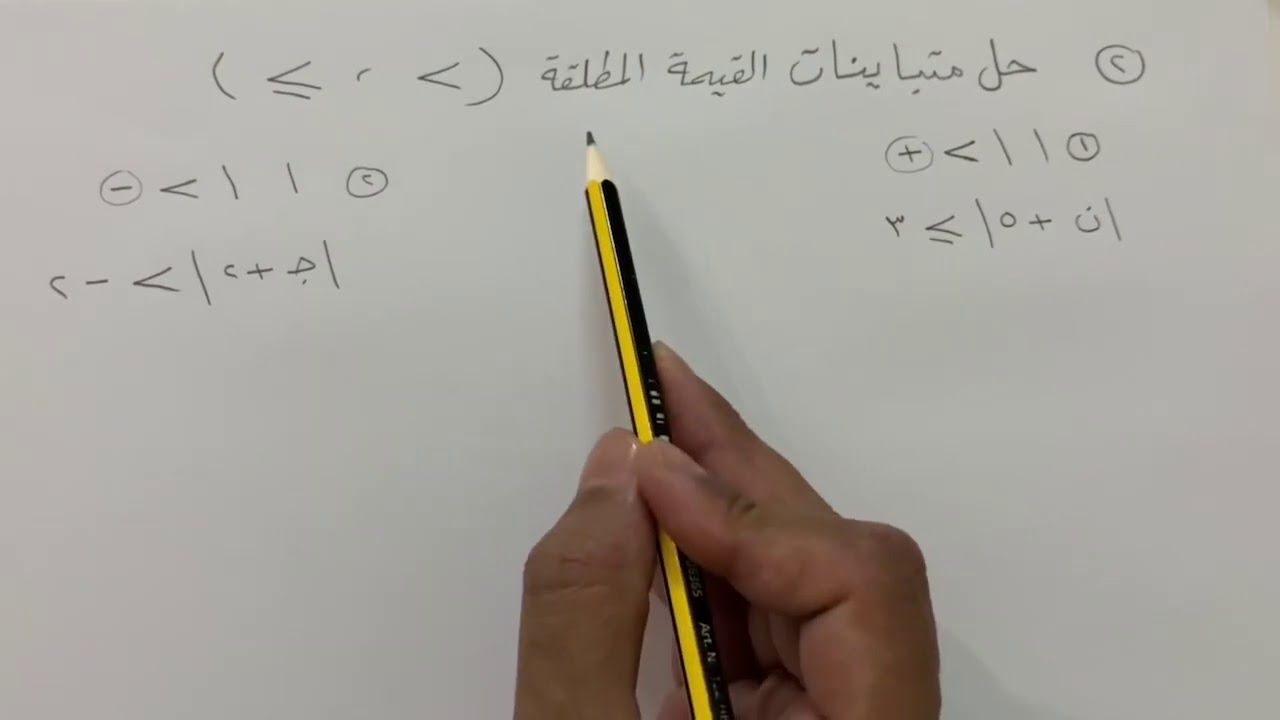 ② حل متباينات القيمة المطلقة ( > ، ≥ )
① | | > ⊕
|ن + ٥| ≥ ٣
② | | > ⊖
|جـ + ٢| > - ٢
Art. N